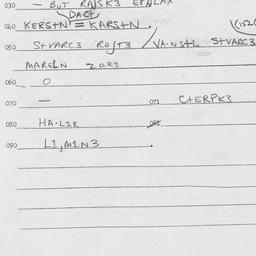 030 — BUT RAJSK3 EPALAX
DACT
040 KERS+N = KARS+N.
(152
050 S+VARC3 ROJT3 / VA·NS+L S+VARC3
MARELN 2 QR3
060 0
070 — 073 C+ERPK3
080 HA·L2K 083
090 L1, M1N3 .